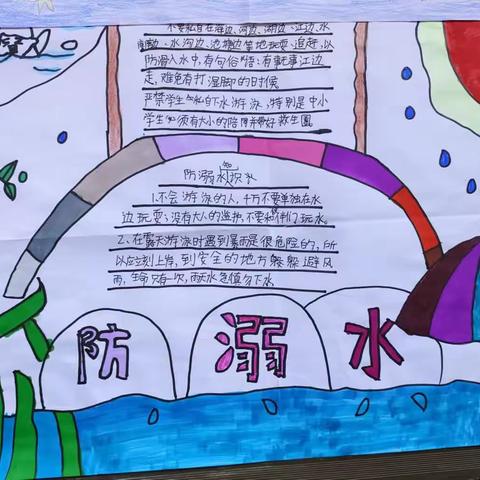 不要私自在海边、河边、湖边、江边、水
水沟边、池塘边等地玩耍、追赶,以
防滑入水中,有句俗语:有事无事江边
走,难免有打湿脚的时候
严禁学生私自下水游泳,特别是中小
学生必须有大小的陪同并带好救生圈
防溺水知识
1.不会游泳的人,千万不要单独在水
边玩耍;没有大人的监护,不要和伙伴们玩水
2、在露天游泳时遇到暴雨是很危险的,所
以应立刻上岸,到安全的地方躲躲避风
雨,生命只有一次,雨天水急值勿下水
防溺水